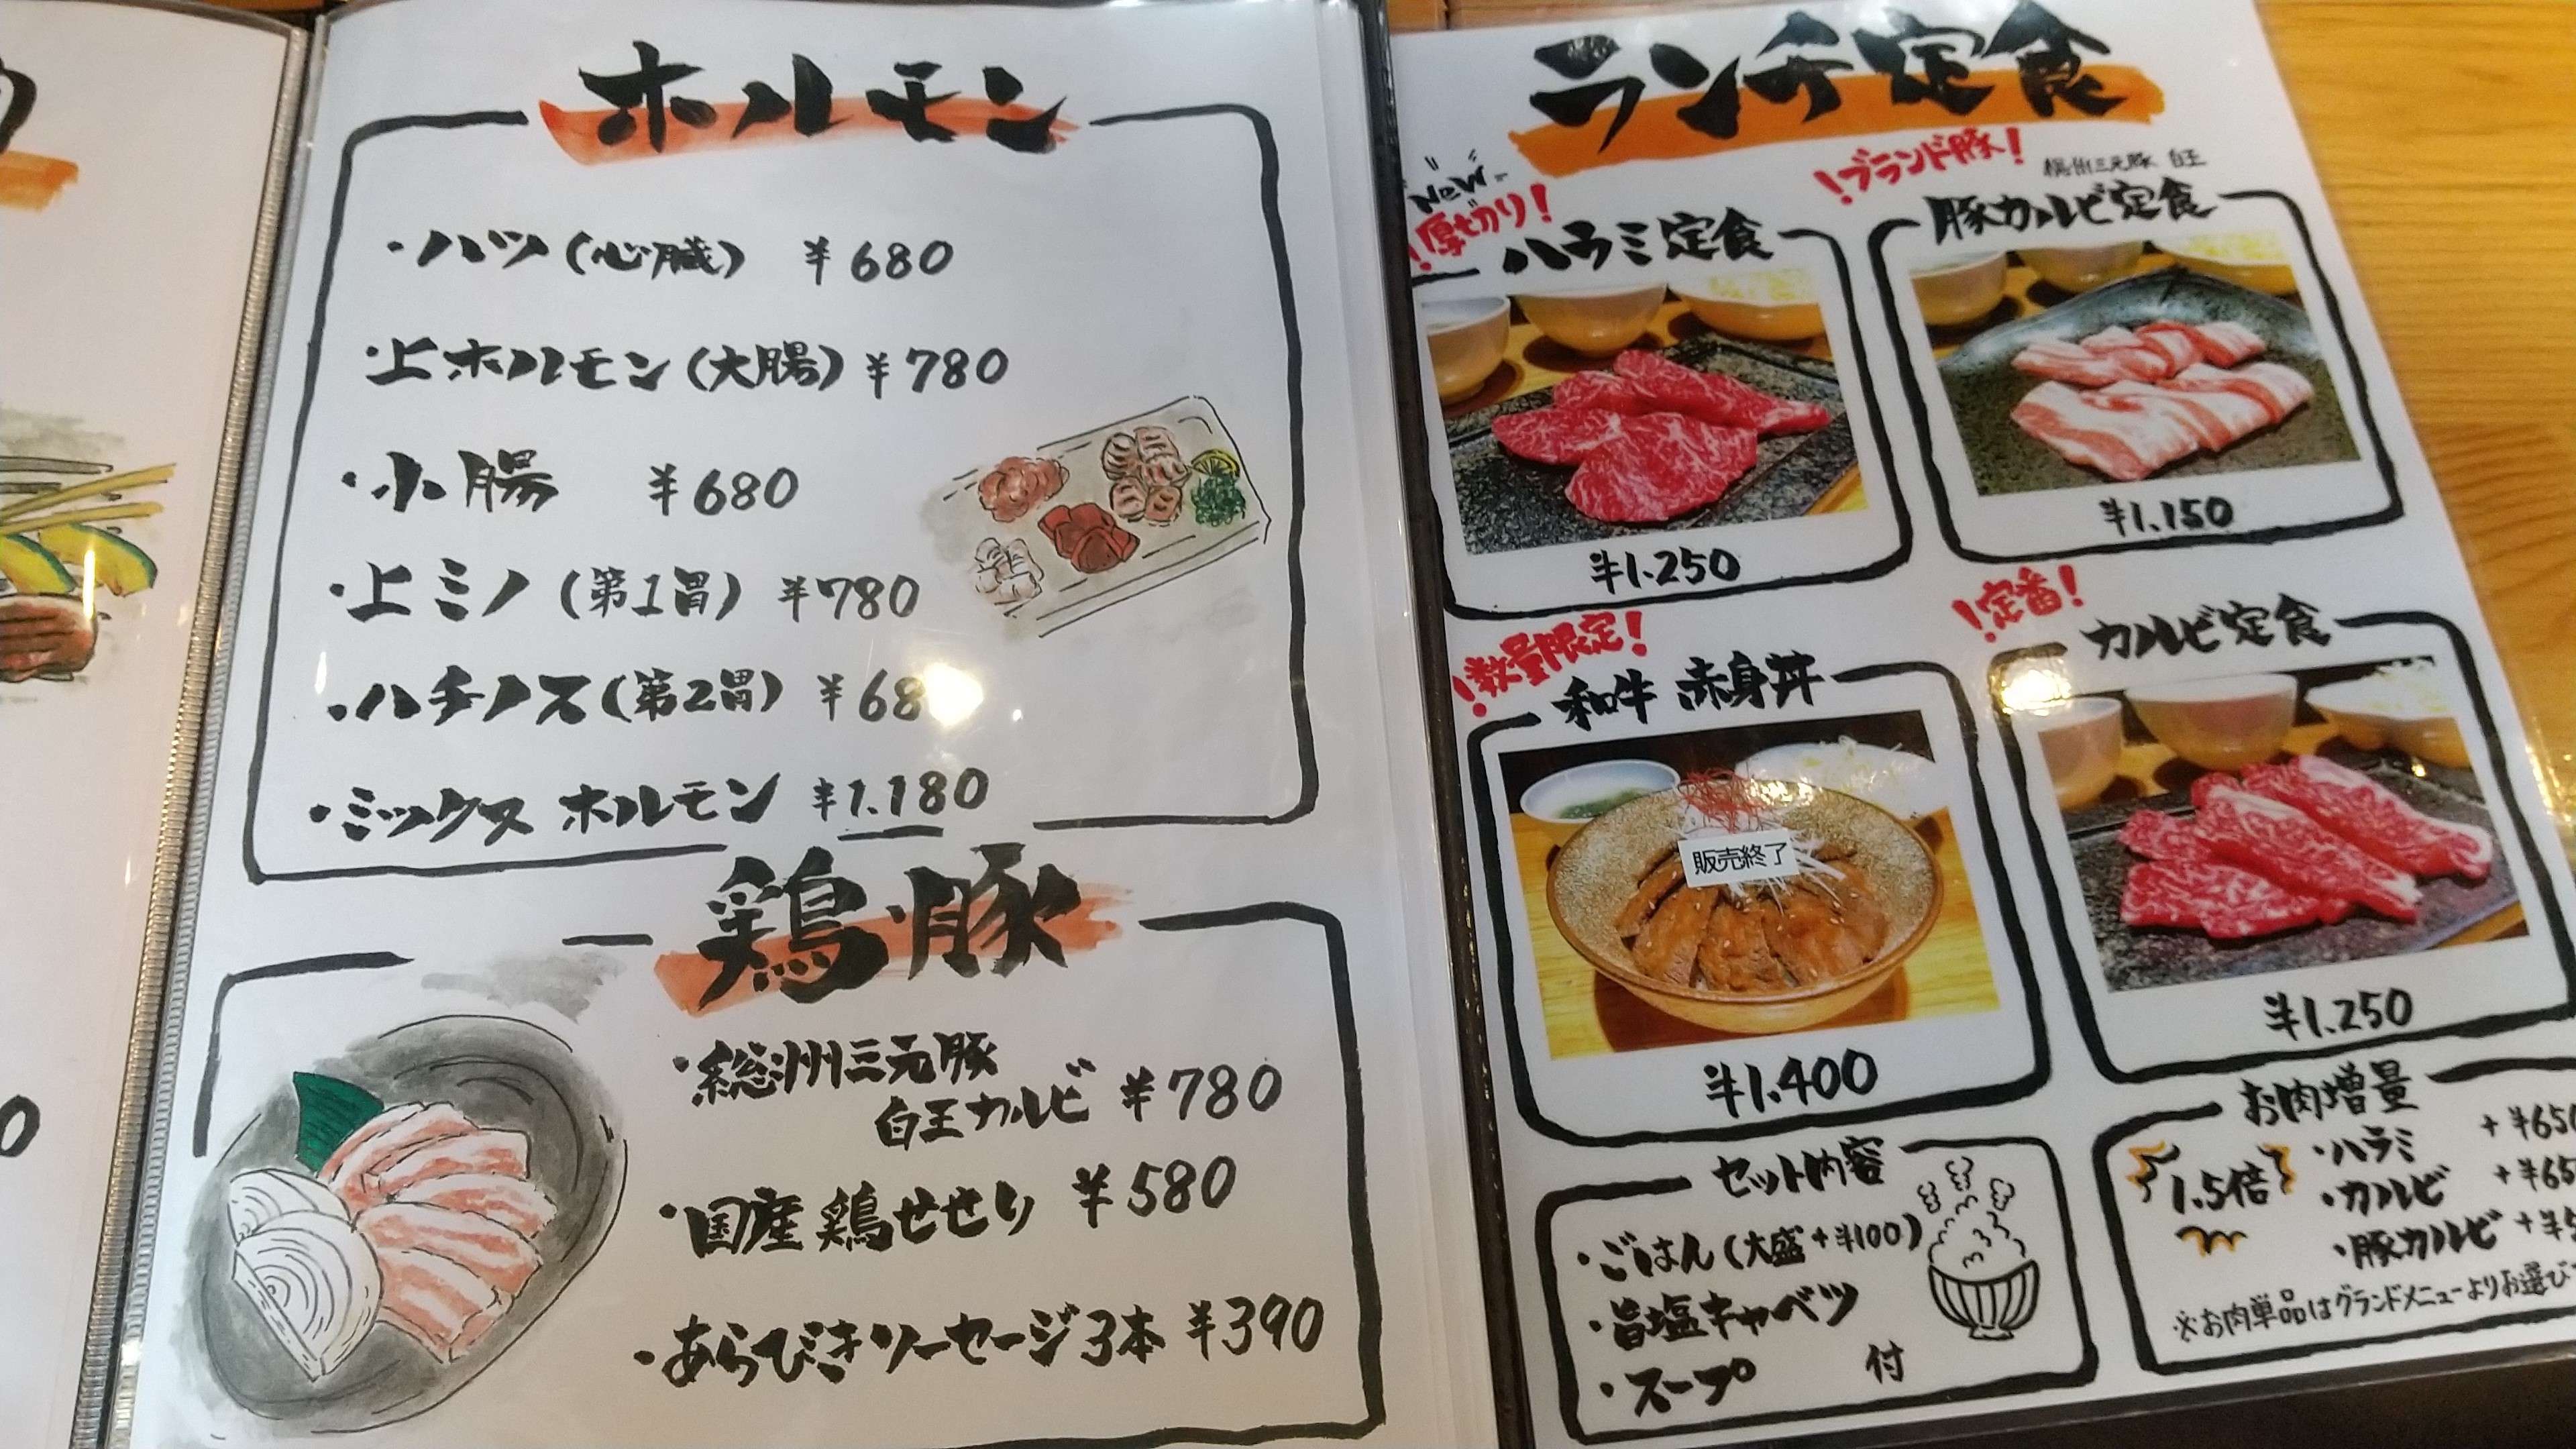 ホルモン
・ハツ(心臓) ¥680
・上ホルモン(大腸) ¥780
・小腸 ¥680
・上ミノ(第1胃) ¥780
・ハチノス(第2胃) ¥68
・ミックス ホルモン ¥1.180
鶏・豚
・総州三元豚
白王カルビ ¥780
・国産鶏せせり ¥580
・あらびきソーセージ3本 ¥390
ランチ定食
New
!厚切り!
ハラミ定食
¥1.250
!ブランド豚!
総州三元豚 白王
豚カルビ定食
¥1.150
!数量限定!
和牛 赤身丼
販売終了
¥1.400
!定番!
カルビ定食
¥1.250
セット内容
・ごはん(大盛+¥100)
・旨塩キャベツ
・スープ 付
お肉増量
1.5倍
・ハラミ +¥650
・カルビ +¥65
・豚カルビ +¥5
※お肉単品はグランドメニューよりお選び